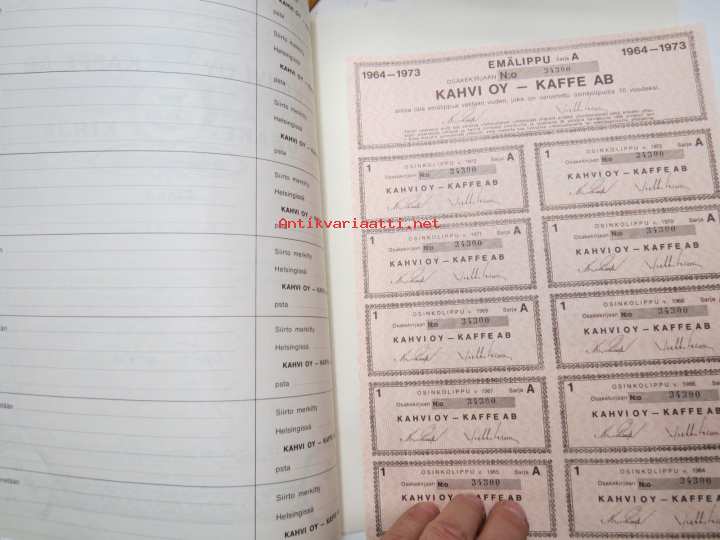 psta
Siirto merkitty
Helsingissä
KAHVI OY
psta
Siirto merkitty
Helsingissä
KAHVI OY
psta
Siirto merkitty
Helsingissä
KAHVI OY
psta
Siirto merkitty
Helsingissä
KAHVI OY –
psta
Siirto merkitty
Helsingissä
KAHVI OY –
psta
Siirto merkitty
Helsingissä
KAHVI OY –
psta
Siirto merkitty
Helsingissä
KAHVI OY –
1964—1973
EMÄLIPPU Sarja A
1964—1973
OSAKEKIRJAAN N:o 34300
KAHVI OY — KAFFE AB
1 OSINKOLIPPU v. 1973 Sarja A
Osakekirjaan N:o 34300
KAHVI OY — KAFFE AB
1 OSINKOLIPPU v. 1972 Sarja A
Osakekirjaan N:o 34300
KAHVI OY — KAFFE AB
1 OSINKOLIPPU v. 1971 Sarja A
Osakekirjaan N:o 34300
KAHVI OY — KAFFE AB
1 OSINKOLIPPU v. 1970 Sarja
Osakekirjaan N:o 34300
KAHVI OY — KAFFE AB
1 OSINKOLIPPU v. 1969 Sarja A
Osakekirjaan N:o 34300
KAHVI OY — KAFFE AB
1 OSINKOLIPPU v. 1968
Osakekirjaan N:o 34300
KAHVI OY — KAFFE AB
1 OSINKOLIPPU v. 1967 Sarja A
Osakekirjaan N:o 34300
KAHVI OY — KAFFE AB
1 OSINKOLIPPU v. 1966
Osakekirjaan N:o 34300
KAHVI OY — KAFFE AB
1 OSINKOLIPPU v. 1965 Sarja A
Osakekirjaan N:o 34300
KAHVI OY — KAFFE AB
1 OSINKOLIPPU v. 1964
Osakekirjaan N:o 34300
KAHVI OY — KAFFE AB
Antikvariaatti.net